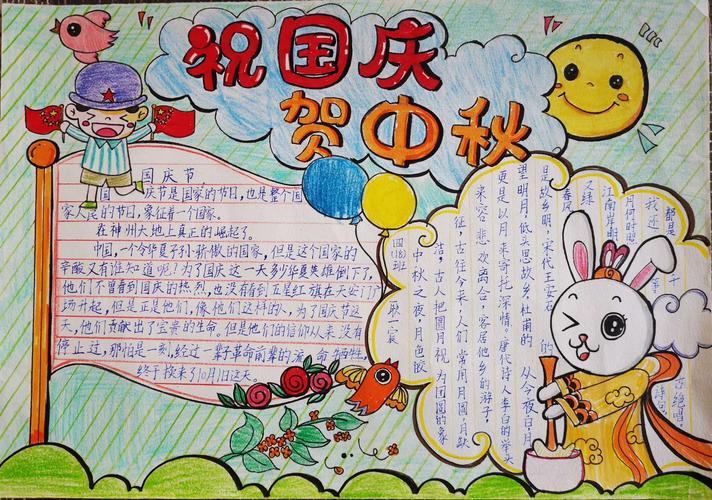 祝国庆
贺中秋
国庆节,
国庆节是国家的节日,也是整个国
家人民的节日,象征着一个国家。
在神州大地上真正的崛起了。
中国,一个令华夏子孙骄傲的国家,但是这个国家的
辛酸又有谁知道呢?为了国庆这一天多少华夏英雄倒下了。
他们不曾看到国庆的热烈,也没有看到五星红旗在天安门广
场升起,但是正是他们,像他们这样的人,为了国庆节这
天,他们贡献出了宝贵的生命,但是他们的信仰从来没有
停止过,那怕是一刻,经过一辈子革命前辈的流血牺牲,
终于换来了10月1日这天。
四(18)班
中秋之夜,月色皎
洁,古人把圆月视为团圆的象
征,古往今来,人们常用月圆,月缺
来容悲欢离合,客居他乡的游子,
更是以月来寄托深情。唐代诗人李白的举头
望明月,低头思故乡,杜甫的
从今夜白,月
是故乡明,宋代王安石的
春风
又绿
江南岸,明
月何时照
我还
都是千
古绝唱
诗句。